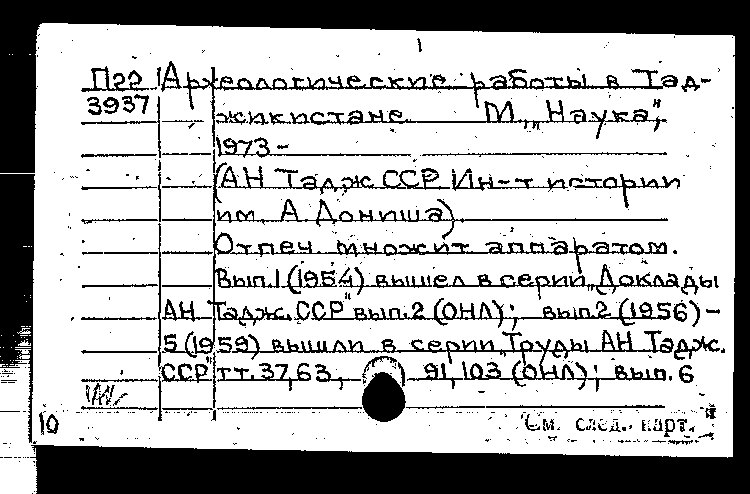 1
П22 Археологические работы в Тад-
3937 жикистане. М., „Наука",
1973-
(АН Тадж.ССР. Ин-т истории
им. А. Дониша).
Отпеч. множит. аппаратом.
Вып.1 (1954) вышел в серии „Доклады
АН Тадж. ССР" вып.2 (ОНЛ); вып.2 (1956) –
5 (1959) вышли в серии „Труды АН Тадж.
ССР" тт. 37,63, 91,103 (ОНЛ); вып. 6
10 См. след. карт.